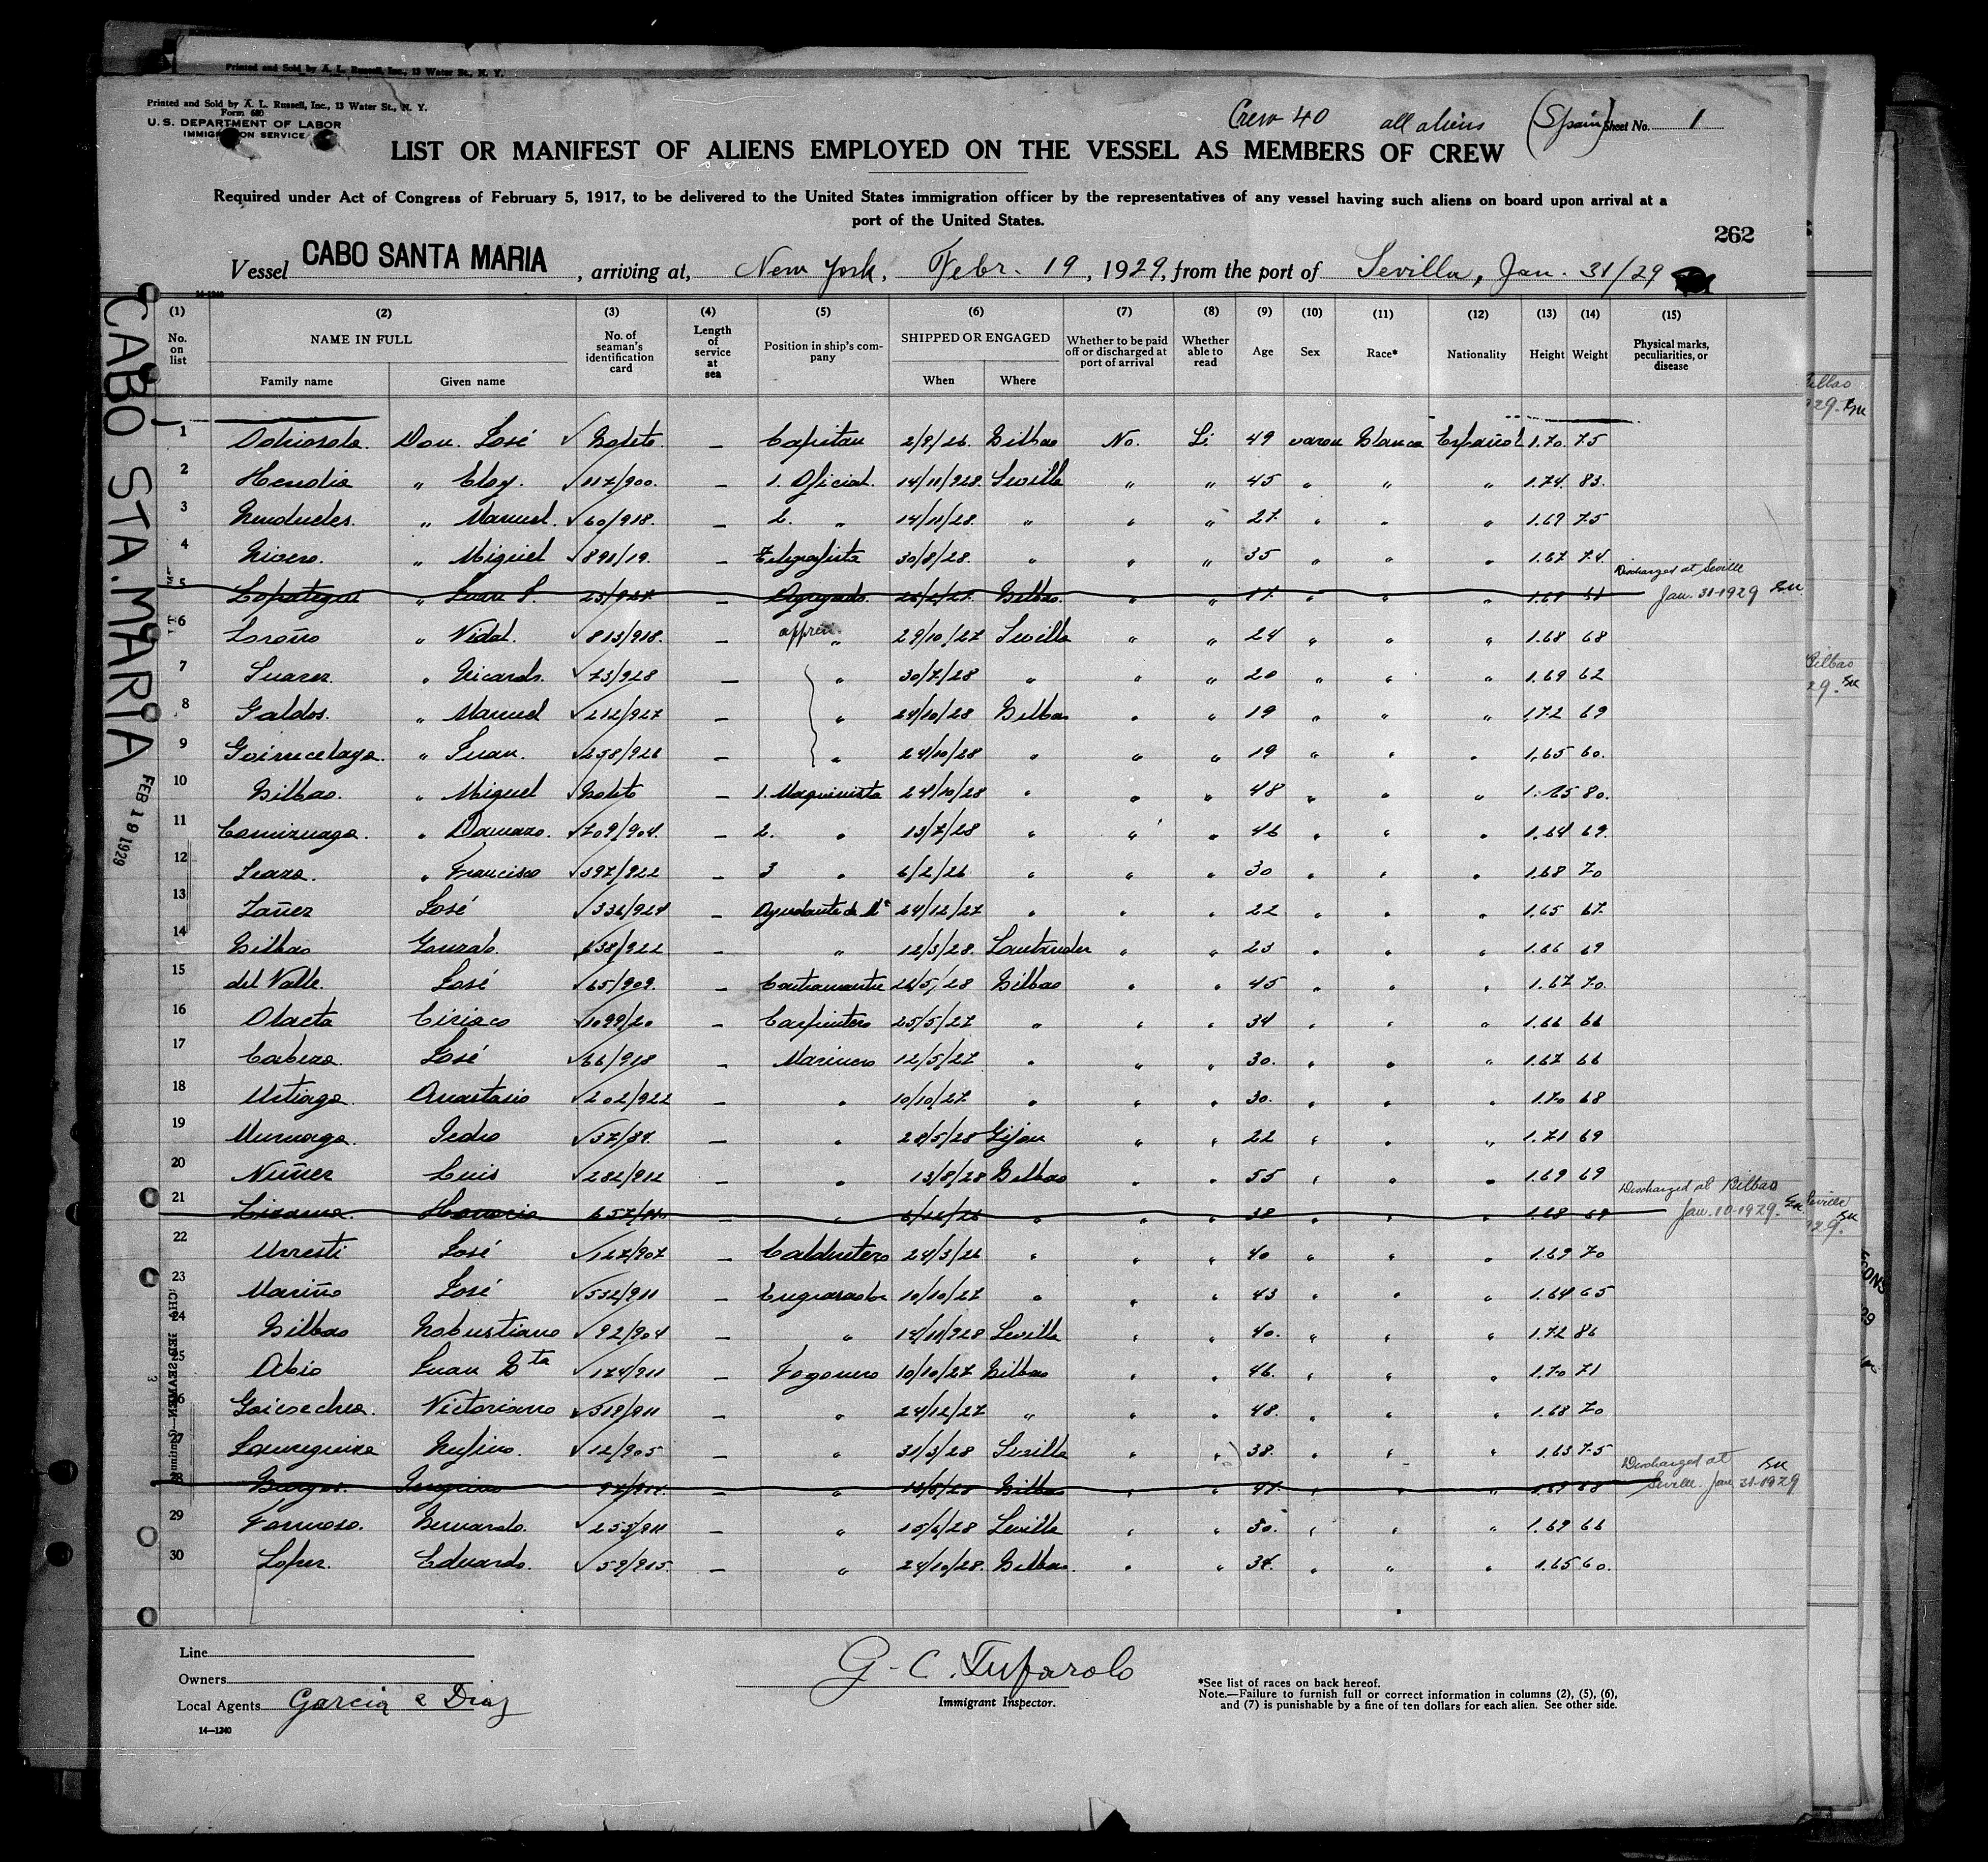 Printed and Sold by A. L. Russell, Inc., 13 Water St., N. Y.
Printed and Sold by A. L. Russell, Inc., 13 Water St., N. Y.
Form 680
U. S. DEPARTMENT OF LABOR
IMMIGRATION SERVICE
Crew 40 all aliens (Spain) Sheet No. 1
LIST OR MANIFEST OF ALIENS EMPLOYED ON THE VESSEL AS MEMBERS OF CREW
Required under Act of Congress of February 5, 1917, to be delivered to the United States immigration officer by the representatives of any vessel having such aliens on board upon arrival at a
port of the United States.
262
Vessel CABO SANTA MARIA, arriving at, New York, Febr. 19, 1929, from the port of Sevilla, Jan. 31/29
14-1240
CABO STA. MARIA
FEB 19 1929
(1) (2) (3) (4) (5) (6) (7) (8) (9) (10) (11) (12) (13) (14) (15)
No. on list NAME IN FULL No. of seaman's identification card Length of service at sea Position in ship's company SHIPPED OR ENGAGED Whether to be paid off or discharged at port of arrival Whether able to read Age Sex Race* Nationality Height Weight Physical marks, peculiarities, or disease
Family name Given name When Where
1 Don. José Capitan 2/9/26 Bilbao No. Si 49 varon Blanca Español 1.70 75
2 Heredia " Eloy. 117/900. — 1. Oficial. 14/11/928. Sevilla " " 45 " " " 1.74 83.
3 " Manuel. 60/918. — 2. " 14/11/28. " " " 27. " " " 1.69 75
4 Rivero. " Miguel 891/19. — Telegrafista 30/8/28. " " " 35 " " " 1.67 74
Discharged at Seville
5 Lopategui " Juan 25/927. — Agregado. Bilbao. " " 17. " " " 1.69
Jan. 31-1929
6 Loroño " Vidal. 813/918. — appren. " 29/10/27 Sevilla " " 24 " " " 1.68 68
7 Suarez " Ricardo. 73/928 — " 30/7/28 " " " 20 " " " 1.69 62
8 Galdos. " Manuel 212/927 — " 24/10/28 Bilbao " " 19 " " " 1.72 69
9 Goirucelaya. " Juan. 258/926 — " 24/10/28 " " " 19 " " " 1.65 60.
10 Bilbao. " Miguel — 1. Maquinista 24/10/28 " " " 48 " " " 1.65 80.
11 " Damaso. 709/904. — 2. " 13/7/28 " " " 46 " " " 1.64 69.
12 " Francisco 397/922 — 3 " 6/2/26 " " " 30 " " " 1.68 70
13 Yañez José 336/924 — Ayudante de Mª 24/12/27 " " " 22 " " " 1.65 67.
14 Bilbao Gonzalo. 638/922 — " 12/3/28. Santander " " 23 " " " 1.66 69
15 del Valle. José 65/909. — Contramaestre 26/5/28 Bilbao " " 45 " " " 1.67 70.
16 Olaeta Ciriaco 1099/20 — Carpintero 25/5/27 " " " 34 " " " 1.66 66
17 Cabeza. José 66/918 — Marinero 12/5/27 " " " 30. " " " 1.67 66
18 Urtiaga. Anastasio 202/922 — " 10/10/27 " " " 30. " " " 1.70 68
19 Muruaga. Pedro — " 28/5/28 Gijon " " 22 " " " 1.71 69
20 Nuñez Luis 232/912 — " 13/8/28 Bilbao " " 55 " " " 1.69 69
Discharged at Bilbao
21 Lizama — " " " " 38 " " " 1.68
Jan. 10-1929.
22 Urresti José 127/907 — Caldretero 24/3/26 " " " 40 " " " 1.69 70
23 Mariño José 532/911 — Engrasador 10/10/27 " " " 43 " " " 1.64 65
24 Bilbao Robustiano 92/904 — " 14/11/928 Sevilla " " 40. " " " 1.72 86
25 Abio Juan Bta 174/911 — Fogonero 10/10/27 Bilbao " " 46. " " " 1.70 71
26 Goicoechea. Victoriano 518/911 — " 24/12/27 " " " 48. " " " 1.68 70
27 Jaureguizar Rufino. 12/905 — " 31/3/28 Sevilla " " 38. " " " 1.63 75
Discharged at
28 Burgos. — " Bilbao " " 47. " " " 68
Seville. Jan. 31-1929
29 Formoso. Bernardo. 255/911 — " 15/6/28 Sevilla " " 30. " " " 1.69 66
30 Lopez. Eduardo. 59/915. — " 24/10/28. Bilbao. " " 34. " " " 1.65 60.
Bilbao
Bilbao
Seville
Line
Owners
Local Agents Garcia & Diaz
14—1240
G. C. Tufarolo
Immigrant Inspector.
*See list of races on back hereof.
Note.—Failure to furnish full or correct information in columns (2), (5), (6),
and (7) is punishable by a fine of ten dollars for each alien. See other side.